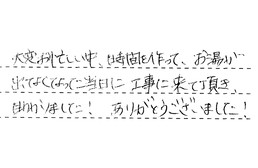 大変お忙しい中、時間を作って、お湯が
出なくなった当日に工事に来て頂き、
助かりました！ ありがとうございました！